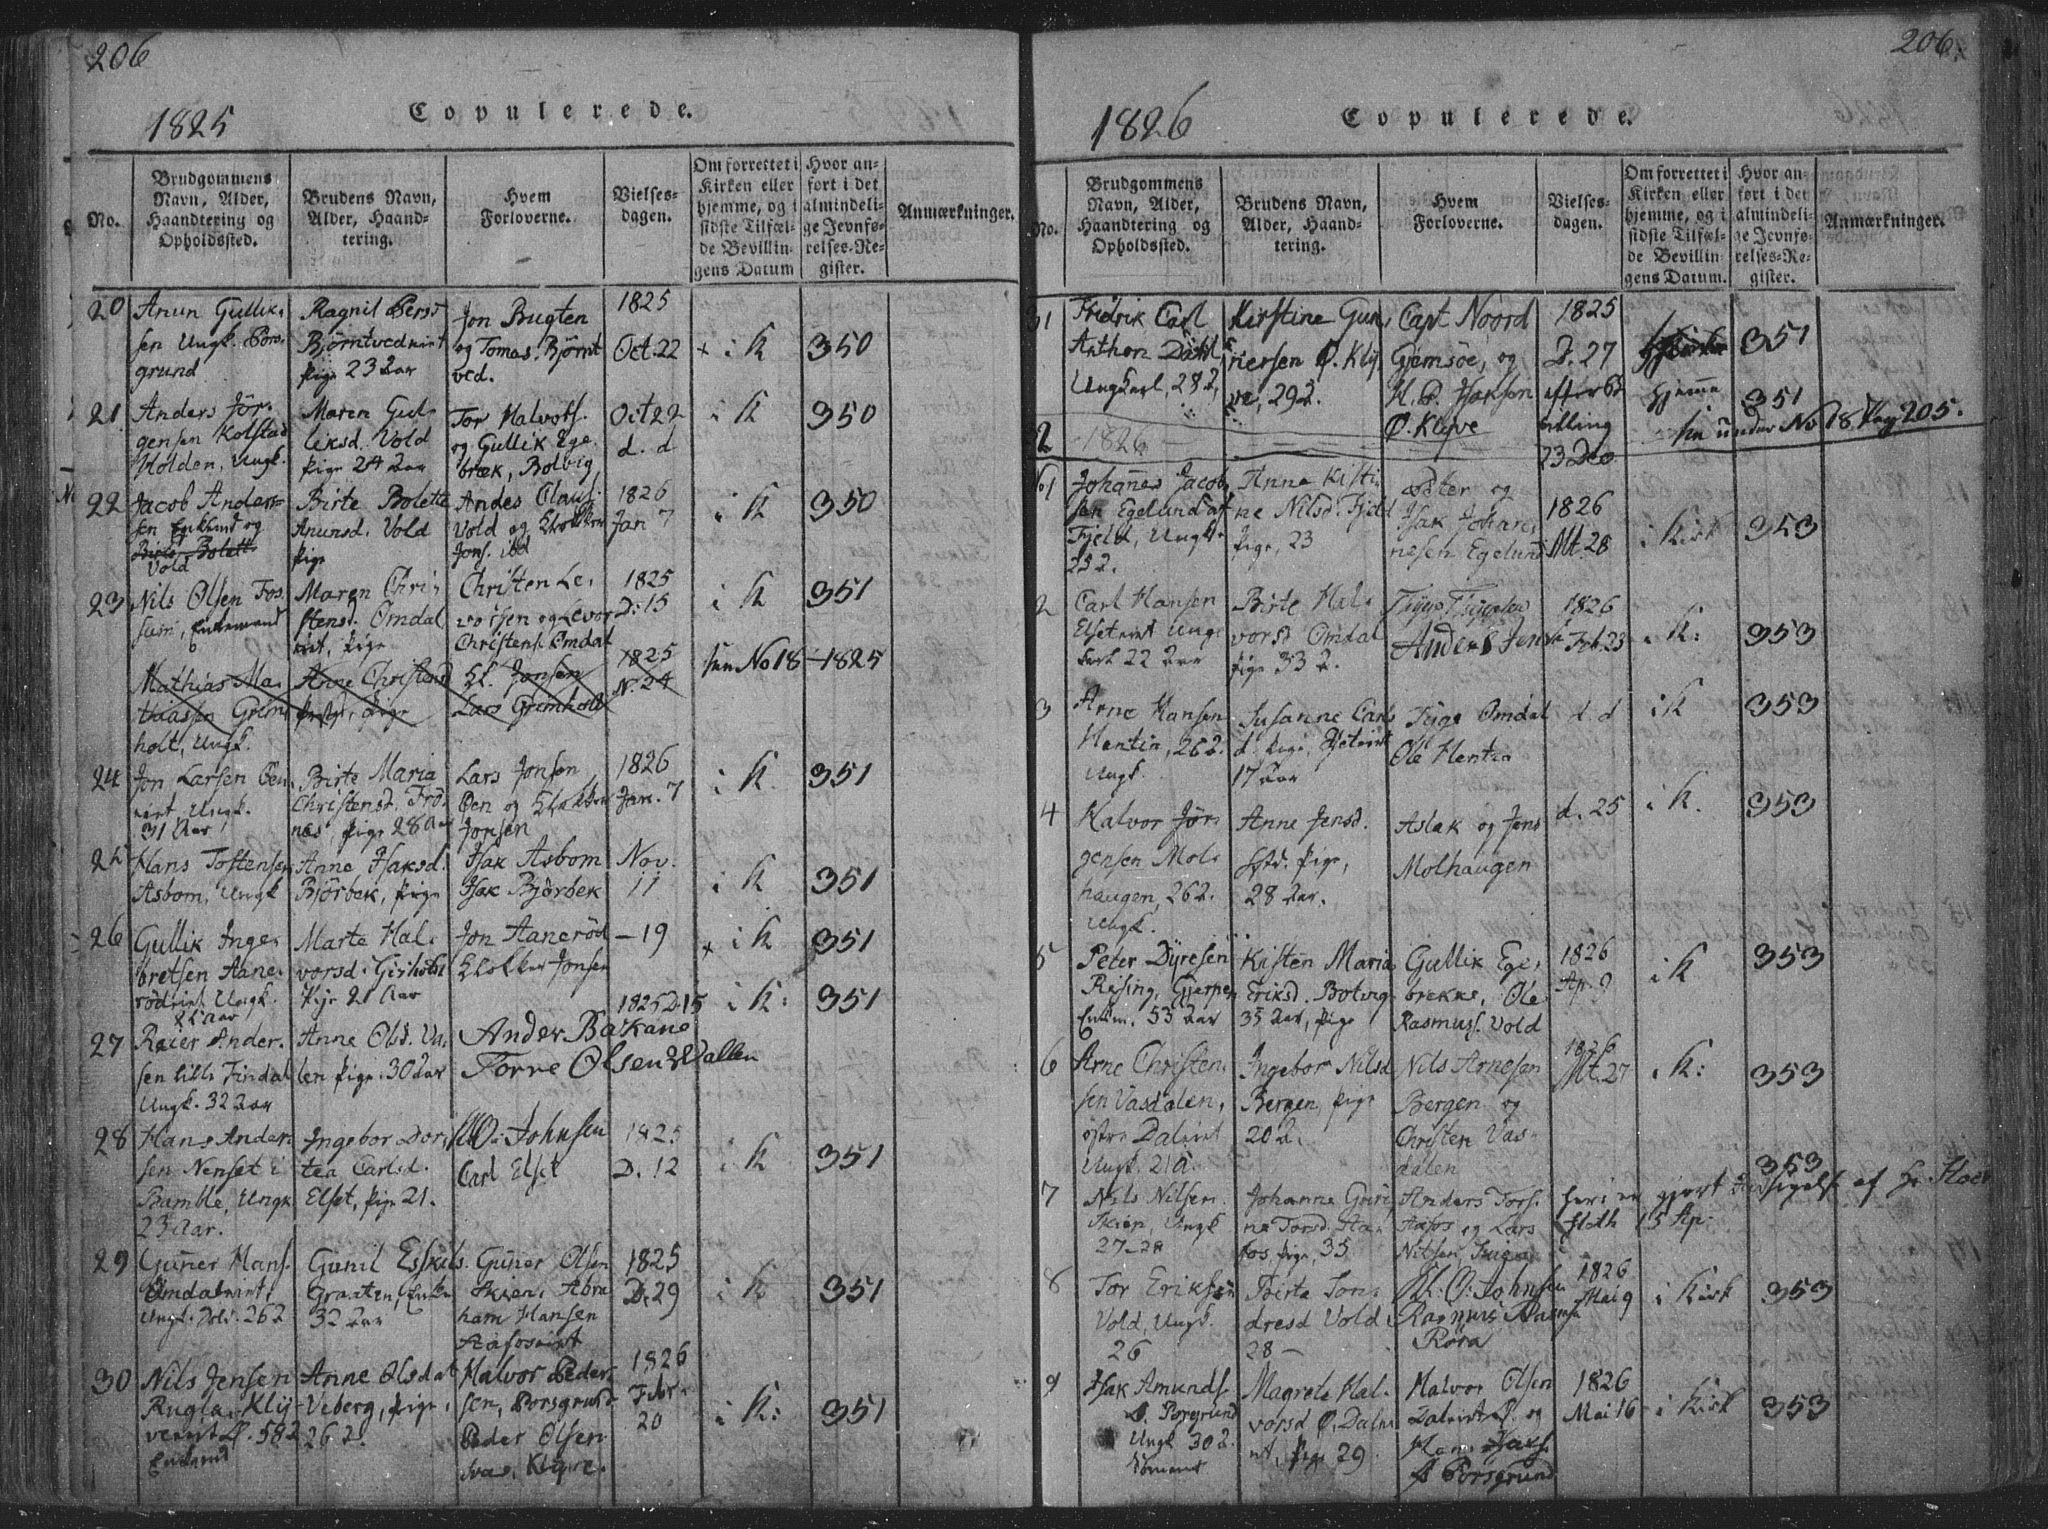 206
1825
Copulerede.
No.
Brudgommens Navn, Alder, Haandtering og Opholdssted.
Brudens Navn, Alder, Haandtering.
Hvem Forloverne.
Vielses-dagen.
Om forrettet i Kirken eller hjemme, og i sidste Tilfælde Bevillingens Datum
Hvor anført i det almindelige Jevnførelses-Register.
Anmærkninger.
20
Anun Gullik-
sen Ungk. Pors-
grund
Ragnil Persd
Björntvedeiet
Pige 23 Aar
Jon Bugten
og Tomas Björnt
ved.
1825
Oct. 22
+ i K
350
21
Anders Jör-
gensen Kolstad
Holden, Ungk.
Maren Gul-
liksd. Vold
Pige 24 Aar
Tor Halvors.
og Gullik Ege-
bræk, Bolvig
Oct 22
d. d
i K
350
22
Jacob Anders-
sen Enkemd og
Vold
Birte Bolette
Anunsd. Vold
Pige
Andes Olaus.
Vold og Klokker
Jons. ibd
1826
Jan 7
i K
350
23
Nils Olsen Fos-
sum, Enkemand
Maren Chri-
stensd. Omdal
eiet, Pige
Christen Le-
vorsen og Levor
Christens. Omdal
1825
D. 15
i K
351
Mathias Ma-
thiassen Grim-
holt, Ungk.
Anne Christensd
Pige
Kl. Jonsen
Lars Grimholt
1825
N. 24
sen No 18 - 1825
24
Jon Larsen Öen-
eiet Ungk.
31 Aar,
Birte Maria
Christensd. Frö-
nes, Pige 28 Aar
Lars Jonsen
Öen og Klokker
Jonsen
1826
Jan. 7
i K.
351
25
Hans Tostensen
Asbom, Ungk
Anne Isaksd.
Björbek, Pige
Isak Asbom
Isak Björbek
Nov.
11
i K
351
26
Gullik Inge-
bretsen Aane-
rödeiet Ungk.
Marte Hal-
vorsd. Gisholt
Pige 21 Aar
Jon Aaneröd
Klokker Jonsen
— 19
+ i K
351
27
Reier Ander-
sen lille Findal
Ungk. 32 Aar
Anne Olsd. Va-
len Pige, 30 Aar
Ander Bakane
Torre Olsen Wallen
1825 D. 15
i K:
351
28
Hans Ander-
sen Nenset i
Bamble, Ungk
23 Aar.
Ingebor Dor-
tea Carlsd.
Elset, Pige 21.
O: Johnsen
Carl Elset
1825
D. 12
i K
351
29
Guner Hans.
Omdaleiet
Ungk. 26 2
Gunil Eskils-
Graaten, Enke
32 Aar
Guner Olsen
Skien, Abra
ham Hansen
Aafoseiet
1825
D. 29
i K
351
30
Nils Jensen
Rugla, Klÿ-
veeiet Ø. 58 2
Enkemd
Anne Olsdat
Veberg, Pige,
26 2.
Halvor Peder
sen, Porsgrund
Peder Olsen
Svas, Klyve.
1826
Febr.
20
i K:
351
206.
1826
Copulerede.
No.
Brudgommens Navn, Alder, Haandtering og Opholdssted.
Brudens Navn, Alder, Haandtering.
Hvem Forloverne.
Vielses-dagen.
Om forrettet i Kirken eller hjemme, og i sidste Tilfælde Bevillingens Datum.
Hvor anført i det almindelige Jevnførelses-Register.
Anmærkninger.
31
Fridrik Carl
Anthon Dahl
Ungkarl, 28 2,
Kirstine Gun-
nersen Ø. Klÿ-
ve, 29 2.
Capt Noord
Gjemsöe, og
H. P. Isaksen
Ø. Klyve
1825
D. 27
efter Be
villing
23 Dec
hjemme
351
351
2
1826
sen under No 18 Pag 205.
No 1
Johannes Jacob-
sen Egelund af
Fjeld, Ungk.
23 2.
Anne Kisti-
ne Nilsd. Fjeld
Pige, 23
Peter og
Isak Johan-
nesen Egelund
1826
Mt. 28
i Kirk
353
2
Carl Hansen
Elseteiet Ung-
karl 22 Aar
Birte Hal-
vorsd Omdal
Pige 33 2.
Anders Jens
1826
Feb. 23
i K:
353
3
Arne Hansen
Hentin, 26 2.
Ungk.
Susanne Carls
d. Pige,
17 Aar
Tyge Omdal
Ole Hentin
d. d
i K
353
4
Halvor Jör-
gensen Mol-
haugen, 26 2.
Ungk.
Anne Jensd.
Pige,
28 Aar.
Aslak og Jens
Molhaugen
d. 25
i K.
353
5
Peter Dÿresen
Reising, Gjerpen
Enkm. 53 Aar
Kisten Maria
Eriksd. Bolvig
35 Aar, Pige
Gullik Ege-
brekke, Ole
Rasmuss. Vold
1826
Ap. 9
i K
353
6
Arne Christen-
sen Vasdalen,
östre Daleiet
Ungk. 21 A.
Ingebor Nilsd
Bergen, Pige
20 2.
Nils Arnesen
Bergen og
Christen Vas-
dalen
1826
Mt. 27
i K:
353
7
Nils Nilsen
Skien, Ungk
27
Johanne Guri-
ne Torsd. Aa-
fos Pige, 35
Anders Tors.
Aafos og Lars
Nilsen
heri er gjort Indsigelse af Hr
15 Ap:
353
8
Tor Eriksen
Vold, Ungk.
26
Birte Son-
dresd Vold
28 —
Kl. O: Johnsen
Rasmus Rasmus
Röra
1826
Mai 9
i Kirk
353
9
Isak Amunds.
Ø. Porsgrund
Ungk 30 2.
Magrete Hal-
vorsd Ø. Dalei-
et, Pige 29
Halvor Olsen
Daleiet Ø. og
Hans Isaks.
Ø Porsgrund
1826
Mai 16
i Kirk
353